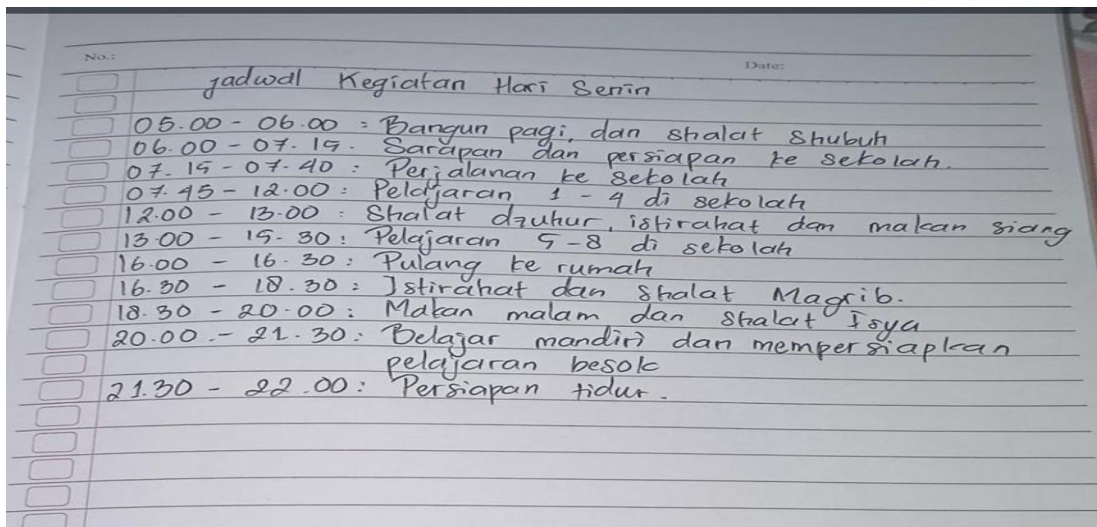 No.:
Date:
Jadwal Kegiatan Hari Senin
05.00 - 06.00 : Bangun pagi, dan shalat Shubuh
06.00 - 07.15. Sarapan dan persiapan ke sekolah.
07.15 - 07.40 : Perjalanan ke sekolah
07.45 - 12.00 : Pelajaran 1 - 4 di sekolah
12.00 - 13.00 : Shalat dzuhur, istirahat dan makan siang
13.00 - 15.30 : Pelajaran 5-8 di sekolah
16.00 - 16.30 : Pulang ke rumah
16.30 - 18.30 : Istirahat dan Shalat Magrib.
18.30 - 20.00 : Makan malam dan Shalat Isya
20.00 - 21.30 : Belajar mandiri dan mempersiapkan
pelajaran besok
21.30 - 22.00 : Persiapan tidur.